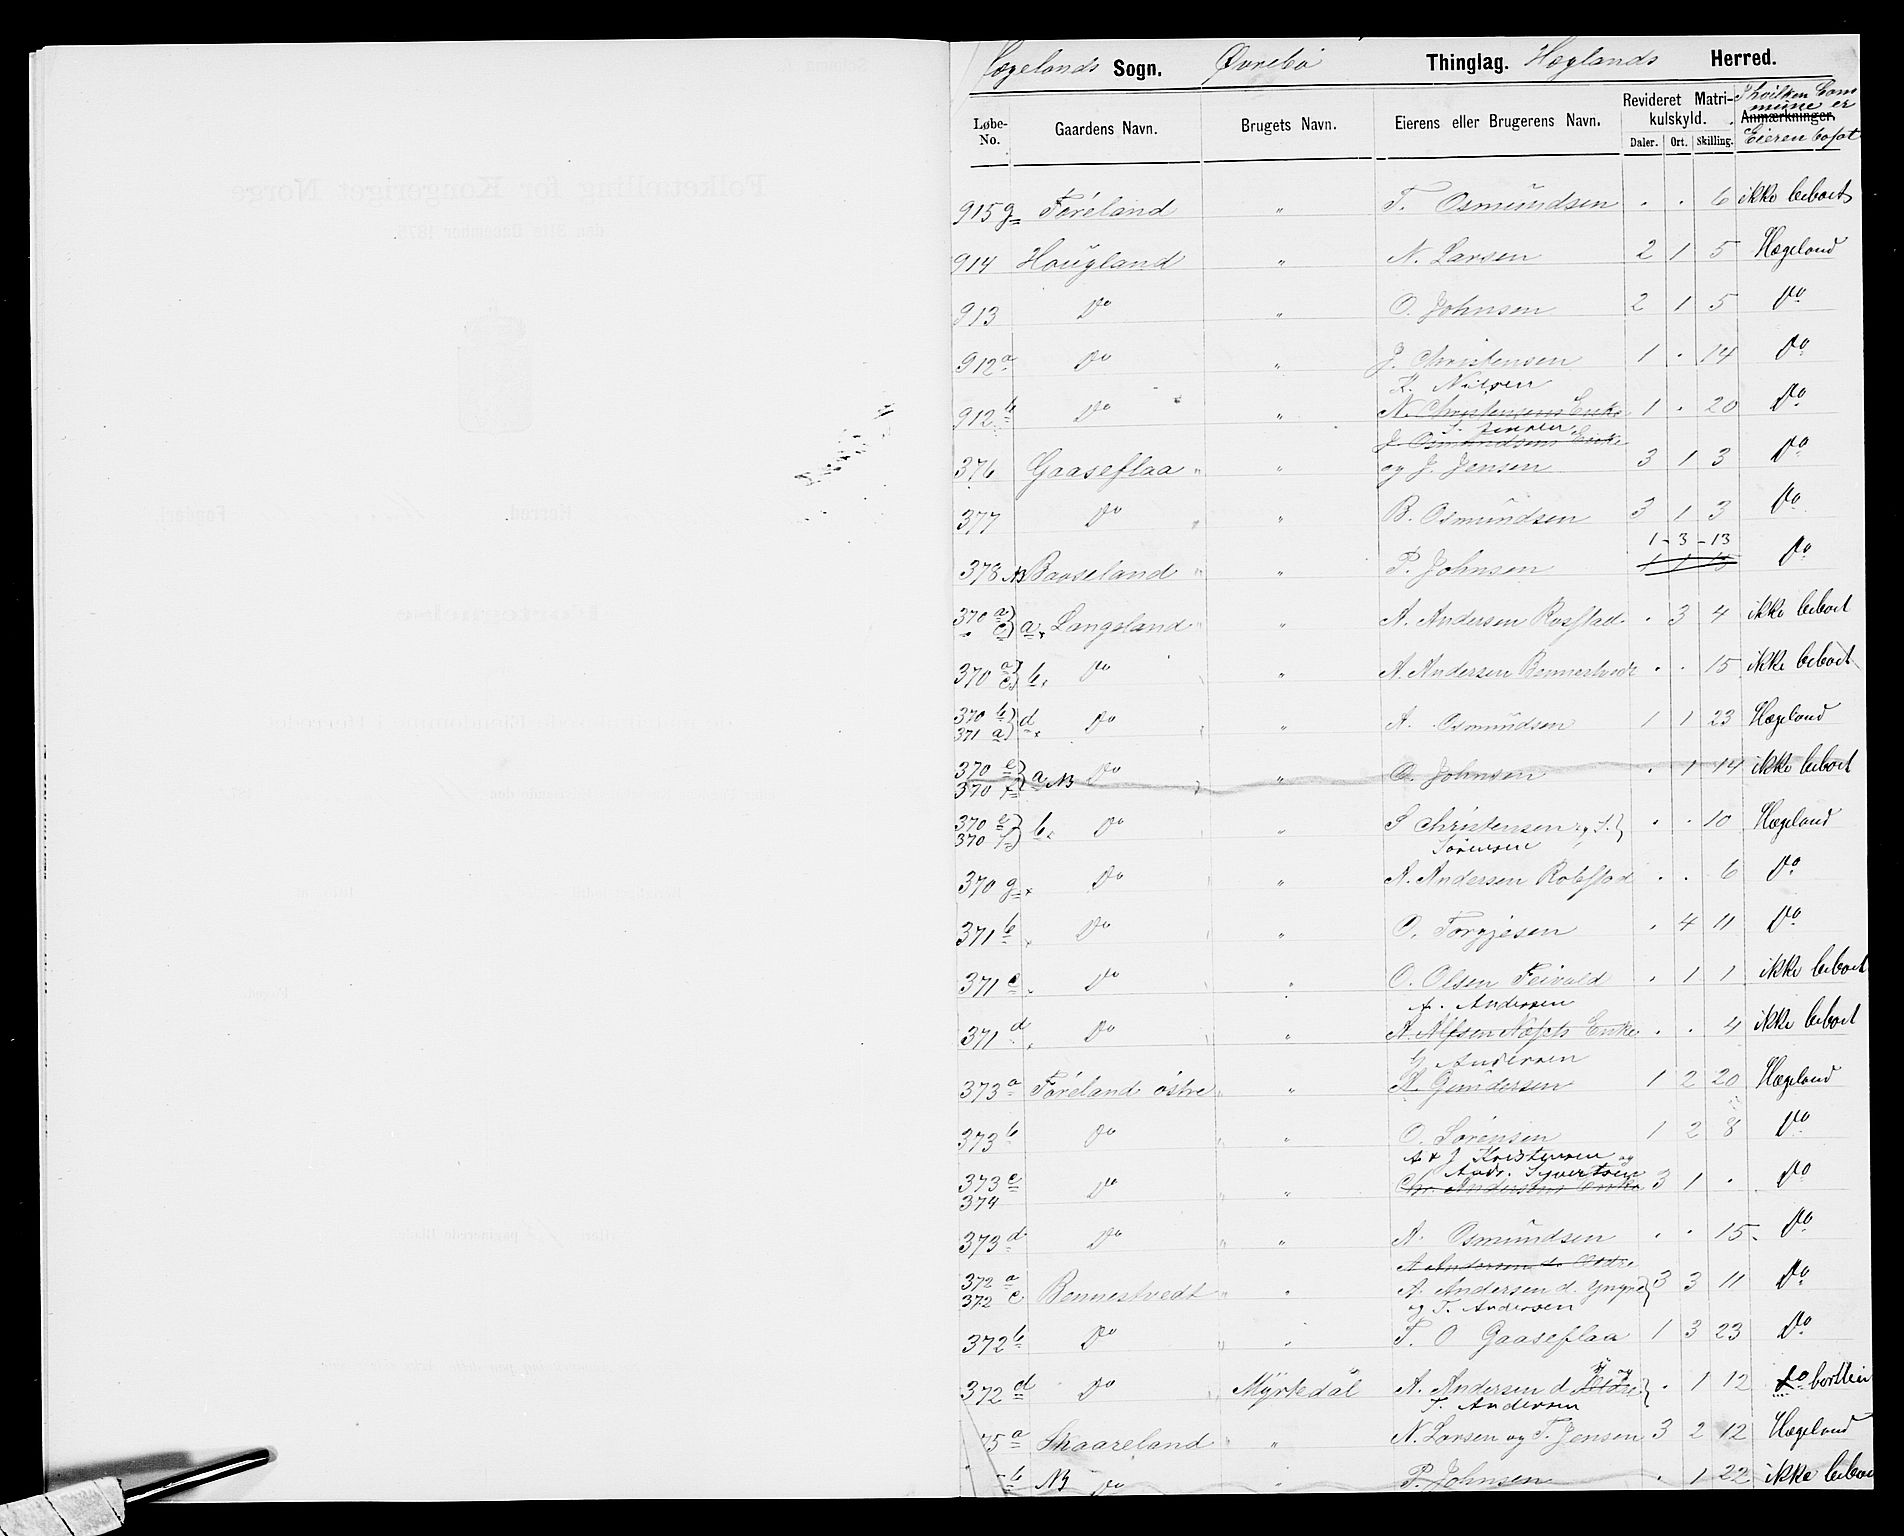 Hægelands Sogn. Øvrebø Thinglag. Hæglands Herred.
Løbe-No. Gaardens Navn. Brugets Navn. Eierens eller Brugerens Navn. Revideret Matrikulskyld. Daler. Ort. Skilling. Anmærkninger. I hvilken Commune er Eieren bosat
915 g Føreland " T. Osmundsen . . 6 ikke beboet
914 Hougland " N. Larsen 2 1 5 Hægeland
913 Do " O. Johnsen 2 1 5 Do
912 a Do " J. Christensen 1 . 14 Do
K. Nilsen
912 b Do " N. Christensens Enke 1 . 20 Do
J. Osmundsens Enke
376 Gaaseflaa " " og J. Jensen 3 1 3 Do
377 Do " " B. Osmundsen 3 1 3 Do
1 - 3 - 13
378 NB Baaseland " " P. Johnsen Do
370 a c) a. Langeland " " A. Andersen Rosstad . 3 4 ikke beboet
370 a c) b. Do " A. Andersen Bennestvedt . . 15 ikke beboet
370 b) 371 a) d Do " A. Osmundsen 1 1 23 Hægeland
370 e 370 f } a NB Do " O. Johnsen . 1 14 ikke beboet
370 e 370 f } b. Do " S Christensen og S. } . . 10 Hægeland
Sørensen
370 g Do " A. Andersen Robstad . . 6 Do
371 b Do " O. Torgjesen . 4 11 Do
371 c Do " O. Olsen Feivold . 1 1 ikke beboet
A. Andersen
371 d Do " Enke . . 4 ikke beboet
G. Andersen
373 a Føreland østre " " A. Gundersen 1 2 20 Hægeland
373 b Do " " O. Sørensen 1 2 8 Do
A & J Kristensen og
Andr. Syvertsen
373 c 374 Do " " Chr. Andersens Enke 3 1 . Do
373 d Do " " A. Osmundsen . . 15 Do
A Andersen d. Eldre
372 a 372 c Bennestvedt " " A. Andersen d. yngre } 3 3 11 Do
og T. Andersen
372 b Do " " T. O Gaaseflaa 1 3 23 Do
372 d Do " Myrkedal A. Andersen d. Eldre og } . 1 12 Do
T. Andersen
75 a Skaareland " " N. Larsen og T. Jensen 3 2 12 Hægeland
b NB Do " P. Johnsen . 1 22 ikke beboe